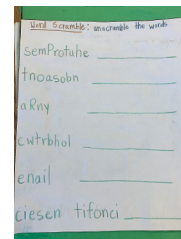 Word Scramble: unscramble the words
semProtuhe
tnoasobn
aRny
cwtrbhol
enail
ciesen tifonci